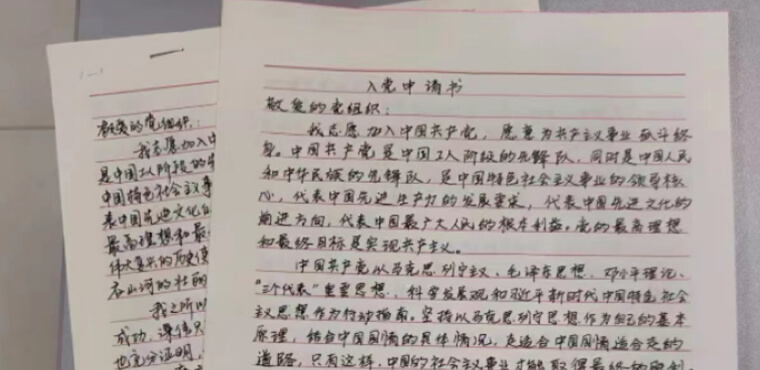 入党申请书
敬爱的党组织：
我志愿加入中国共产党，愿意为共产主义事业奋斗终
身。中国共产党是中国工人阶级的先锋队，同时是中国人民
和中华民族的先锋队，是中国特色社会主义事业的领导核
心，代表中国先进生产力的发展要求，代表中国先进文化的
前进方向，代表中国最广大人民的根本利益。党的最高理想
和最终目标是实现共产主义。
中国共产党以马克思列宁主义、毛泽东思想、邓小平理论、
"三个代表"重要思想、科学发展观和习近平新时代中国特色社会
主义思想作为行动指南。坚持以马克思列宁思想作为自己的基本
原理，结合中国国情的具体情况，走适合中国国情适合走的
道路，只有这样，中国的社会主义事业才能取得最终的胜利。
敬爱的党组织：
我志愿加入中
是中国工人阶级的
中国特色社会主义事
表中国先进文化的
最高理想和最
伟大复兴的历史使
我之所以
成功，课值
也充分证明，